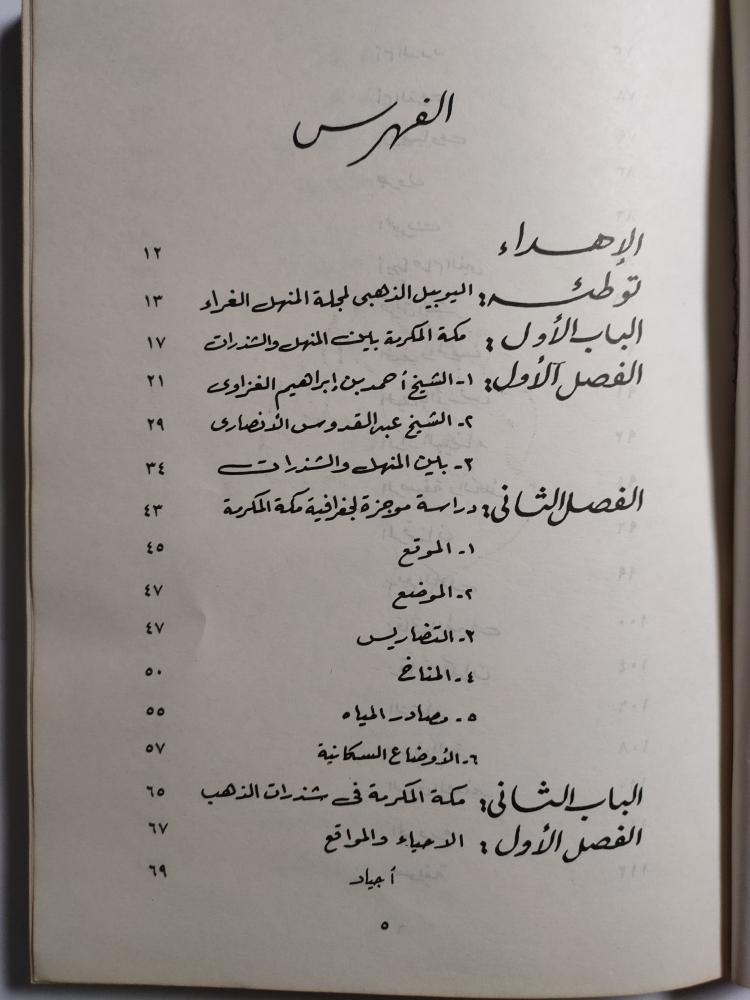 الفهرس
الإهداء ١٢
توطئة: اليوبيل الذهبى لمجلة المنهل الغراء ١٣
الباب الأول: مكة المكرمة بين المنهل والشذرات ١٧
الفصل الأول: ١- الشيخ أحمد بن إبراهيم الغزاوى ٢١
٢- الشيخ عبد القدوس الأنصارى ٢٩
٣- بين المنهل والشذرات ٣٤
الفصل الثانى: دراسة موجزة لجغرافية مكة المكرمة ٤٣
١- الموقع ٤٥
٢- الموضع ٤٧
٣- التضاريس ٤٧
٤- المناخ ٥٠
٥- مصادر المياه ٥٥
٦- الأوضاع السكانية ٥٧
الباب الثانى: مكة المكرمة فى شذرات الذهب ٦٥
الفصل الأول: الاحياء والمواقع ٦٧
أجياد ٦٩
٥